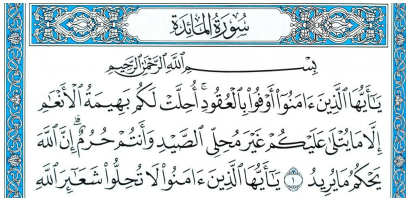 سُورَةُ المَائِدَةِ
بِسْمِ ٱللَّهِ ٱلرَّحْمَٰنِ ٱلرَّحِيمِ
يَٰٓأَيُّهَا ٱلَّذِينَ ءَامَنُوٓا۟ أَوْفُوا۟ بِٱلْعُقُودِۚ أُحِلَّتْ لَكُم بَهِيمَةُ ٱلْأَنْعَٰمِ
إِلَّا مَا يُتْلَىٰ عَلَيْكُمْ غَيْرَ مُحِلِّى ٱلصَّيْدِ وَأَنتُمْ حُرُمٌۗ إِنَّ ٱللَّهَ
يَحْكُمُ مَا يُرِيدُ ١ يَٰٓأَيُّهَا ٱلَّذِينَ ءَامَنُوا۟ لَا تُحِلُّوا۟ شَعَٰٓئِرَ ٱللَّهِ